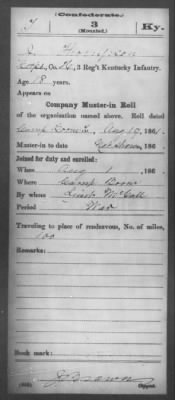 (Confederate.)
T 3 Ky.
(Mounted.)
J. Thompson
Capt, Co. H, 3 Reg't Kentucky Infantry.
Age 18 years.
Appears on
Company Muster-in Roll
of the organization named above. Roll dated
Camp Aug 19, 1861.
Muster-in to date Not shown, 186 .
Joined for duty and enrolled:
When Aug 1, 186 .
Where Camp Boone
By whom
Period War
Traveling to place of rendezvous, No. of miles,
100
Remarks:
Book mark:
J Brown
Copyist.